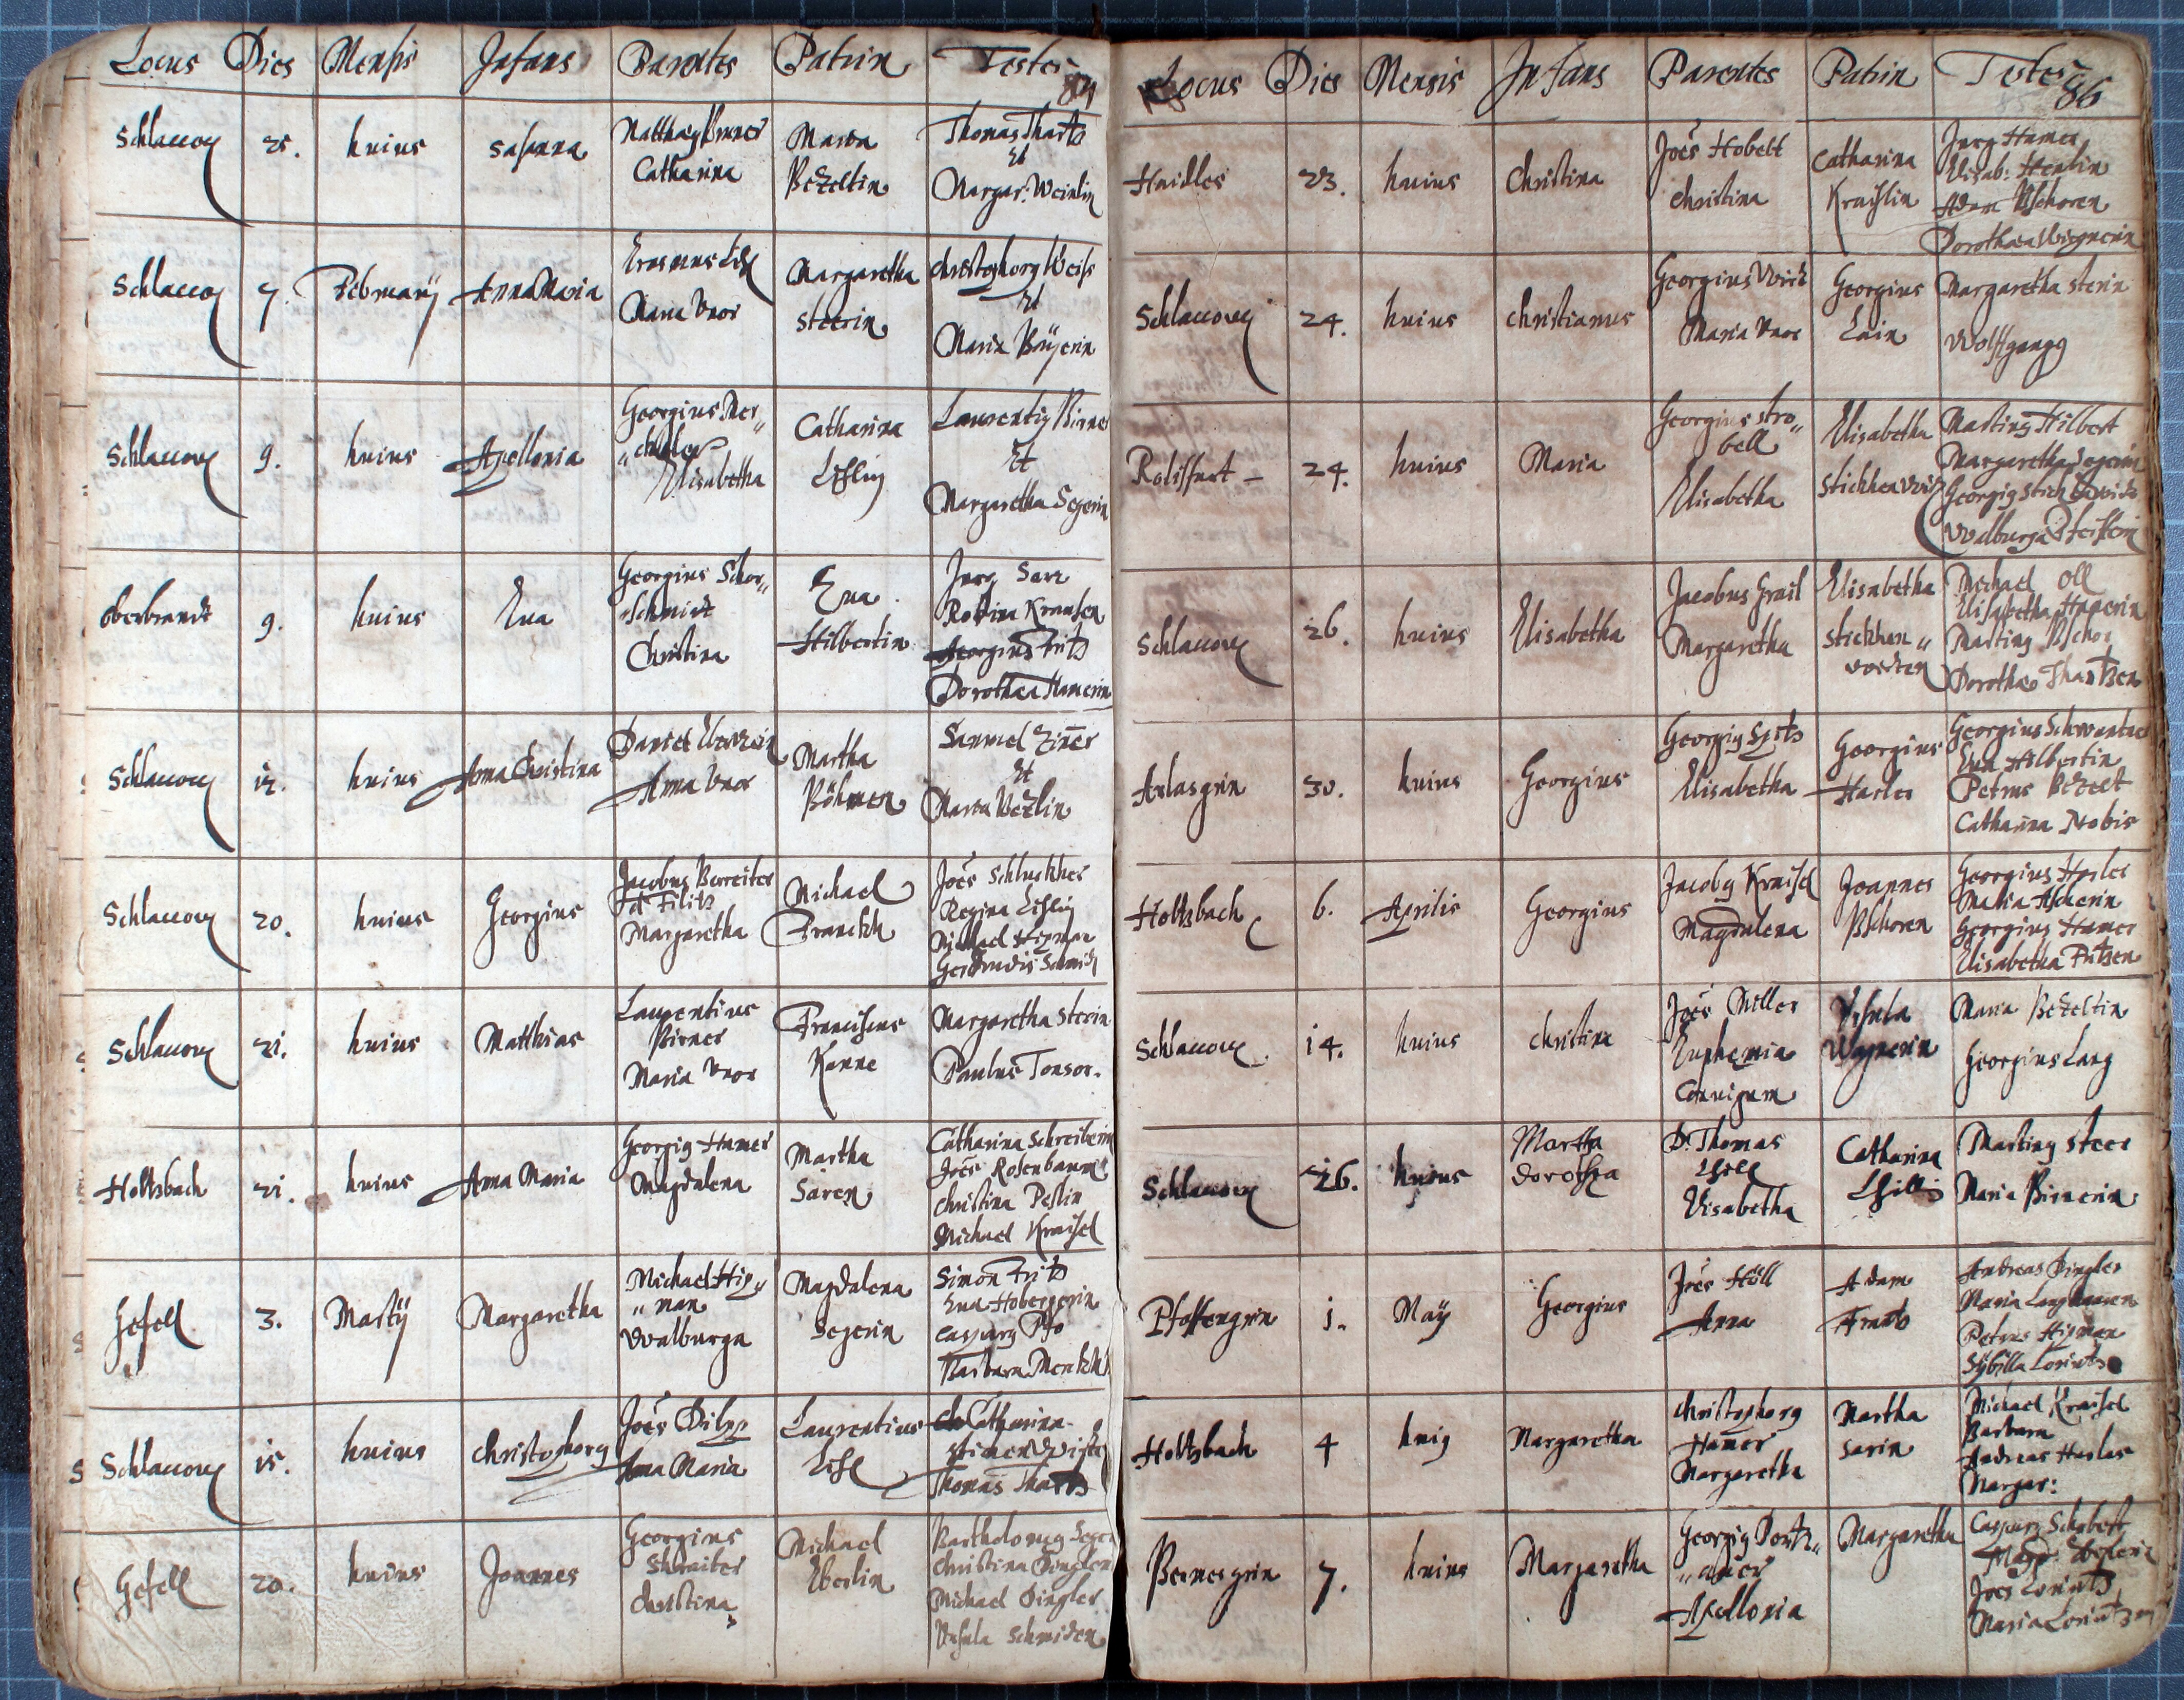 Locus Dies Mensis Infans Parentes Patrin Testes
84
Schlaccow 25. huius Sasanna
Catharina
Maria
Bezeltin
Thomas Thartz
Et
Margar: Weinlin
Schlaccow 7. Februarij Anna Maria
Erasmus Lißl
Maria Vxor
Margaretha
Steerin
Christophorg Weiss
Et
Maria Baÿerin
Schlaccow 9. huius Apollonia
Georgius Mer„
Elisabetha
Catharina
Lisslin
Laurentig Birner
Et
Margaretha Segerin
Oberbrandt 9. huius Eua
Georgius Schor„
„schmidt
Christina
Eua
Hilbertin
Jurg Sarr
Rosina Krausen
Georgius Fritz
Dorothea Hamerin
Schlaccow 12. huius Anna Christina
Daniel
Anna Vxor
Martha
Böhmen
Samuel Ziner
Et
Maria Bezlin
Schlaccow 20. huius Georgius
Jacobus Bereiter
Margaretha
Michael
Franckh
Joës Schluckher
Regina Lisslin
Michael Hipman
Gerdrudis Schmidt
Schlaccow 21. huius Matthias
Laurentius
Birner
Maria Vxor
Franciscus
Kanne
Margaretha Sterin
Paulus Tonsor.
Holtzbach 21. huius Anna Maria
Georgig Hamer
Magdalena
Martha
Saren
Catharina Schreiberin
Joës Rosenbaum
Christina Peslin
Michael Kraissel
Gefell 3. Martij Margaretha
Michael Hip„
„man
Walburga
Magdalena
Segerin
Simon Fritz
Eua Hobergerin
Casparg Pfo
Barbara
Schlaccow 15. huius Christophorg
Joës Dilpp
Anna Maria
Laurentius
Lißl
Catharina
Thomas Thartz
Gefell 20. huius Joannes
Georgius
Christina
Michael
Eberlin
Bartholomeg Seger
Christina Dingler
Michael Dingler
Vrsula Schmiden
Locus Dies Mensis Infans Parentes Patrin Testes
86
Haidles 23. huius Christina
Joës Hobelt
Christina
Catharina
Kraißlin
Jurg Hamer
Elisab: Henlin
Adam Pschoren
Dorothea Wagnerin
Schlaccow 24. huius Christianus
Maria Vxor
Georgius
Lain
Margaretha Sterin
Wolffgangg
24. huius Maria
Georgius Stro„
bell
Elisabetha
Elisabetha
Marting Hilbert
Margaretha Segerin
Walburga
Schlaccow 26. huius Elisabetha
Jacobus Grail
Margaretha
Elisabetha
Stickhen„
Michael Oll
Elisabetha Hamerin
Marting Pschor
Dorothae Thartzen
Arlasgrin 30. huius Georgius
Georgig Spitz
Elisabetha
Georgius
Harles
Eua Hilbertin
Petrus Bezelt
Catharina Nobis
Holtzbach 6. Aprilis Georgius
Jacobg Kraissel
Magdalena
Joannes
Pschoren
Georgius Harles
Georgius Hamer
Elisabetha Fritzen
Schlaccow 14. huius Christina
Joës Miller
Euphemia
Coniugum
Vrsula
Wagnerin
Maria Bezeltin
Georgius Lang
Schlaccow 26. huius
Martha
Dorothea
D. Thomas
Elisabetha
Catharina
Marting Steer
Maria Birnerin
Pfaffengrin 1. Maÿ Georgius
Joës Höll
Anna
Adam
Frantz
Andreas Dingler
Petrus Hipman
Sÿbilla Lorintz
Holtzbach 4 huig Margaretha
Christophorg
Hamer
Margaretha
Martha
Sarin
Michael Kraissel
Barbara
Andreas Harles
Margar:
Bernesgrin 7. huius Margaretha
Apollonia
Margaretha
Joës Lorintz
Maria Lorintzen